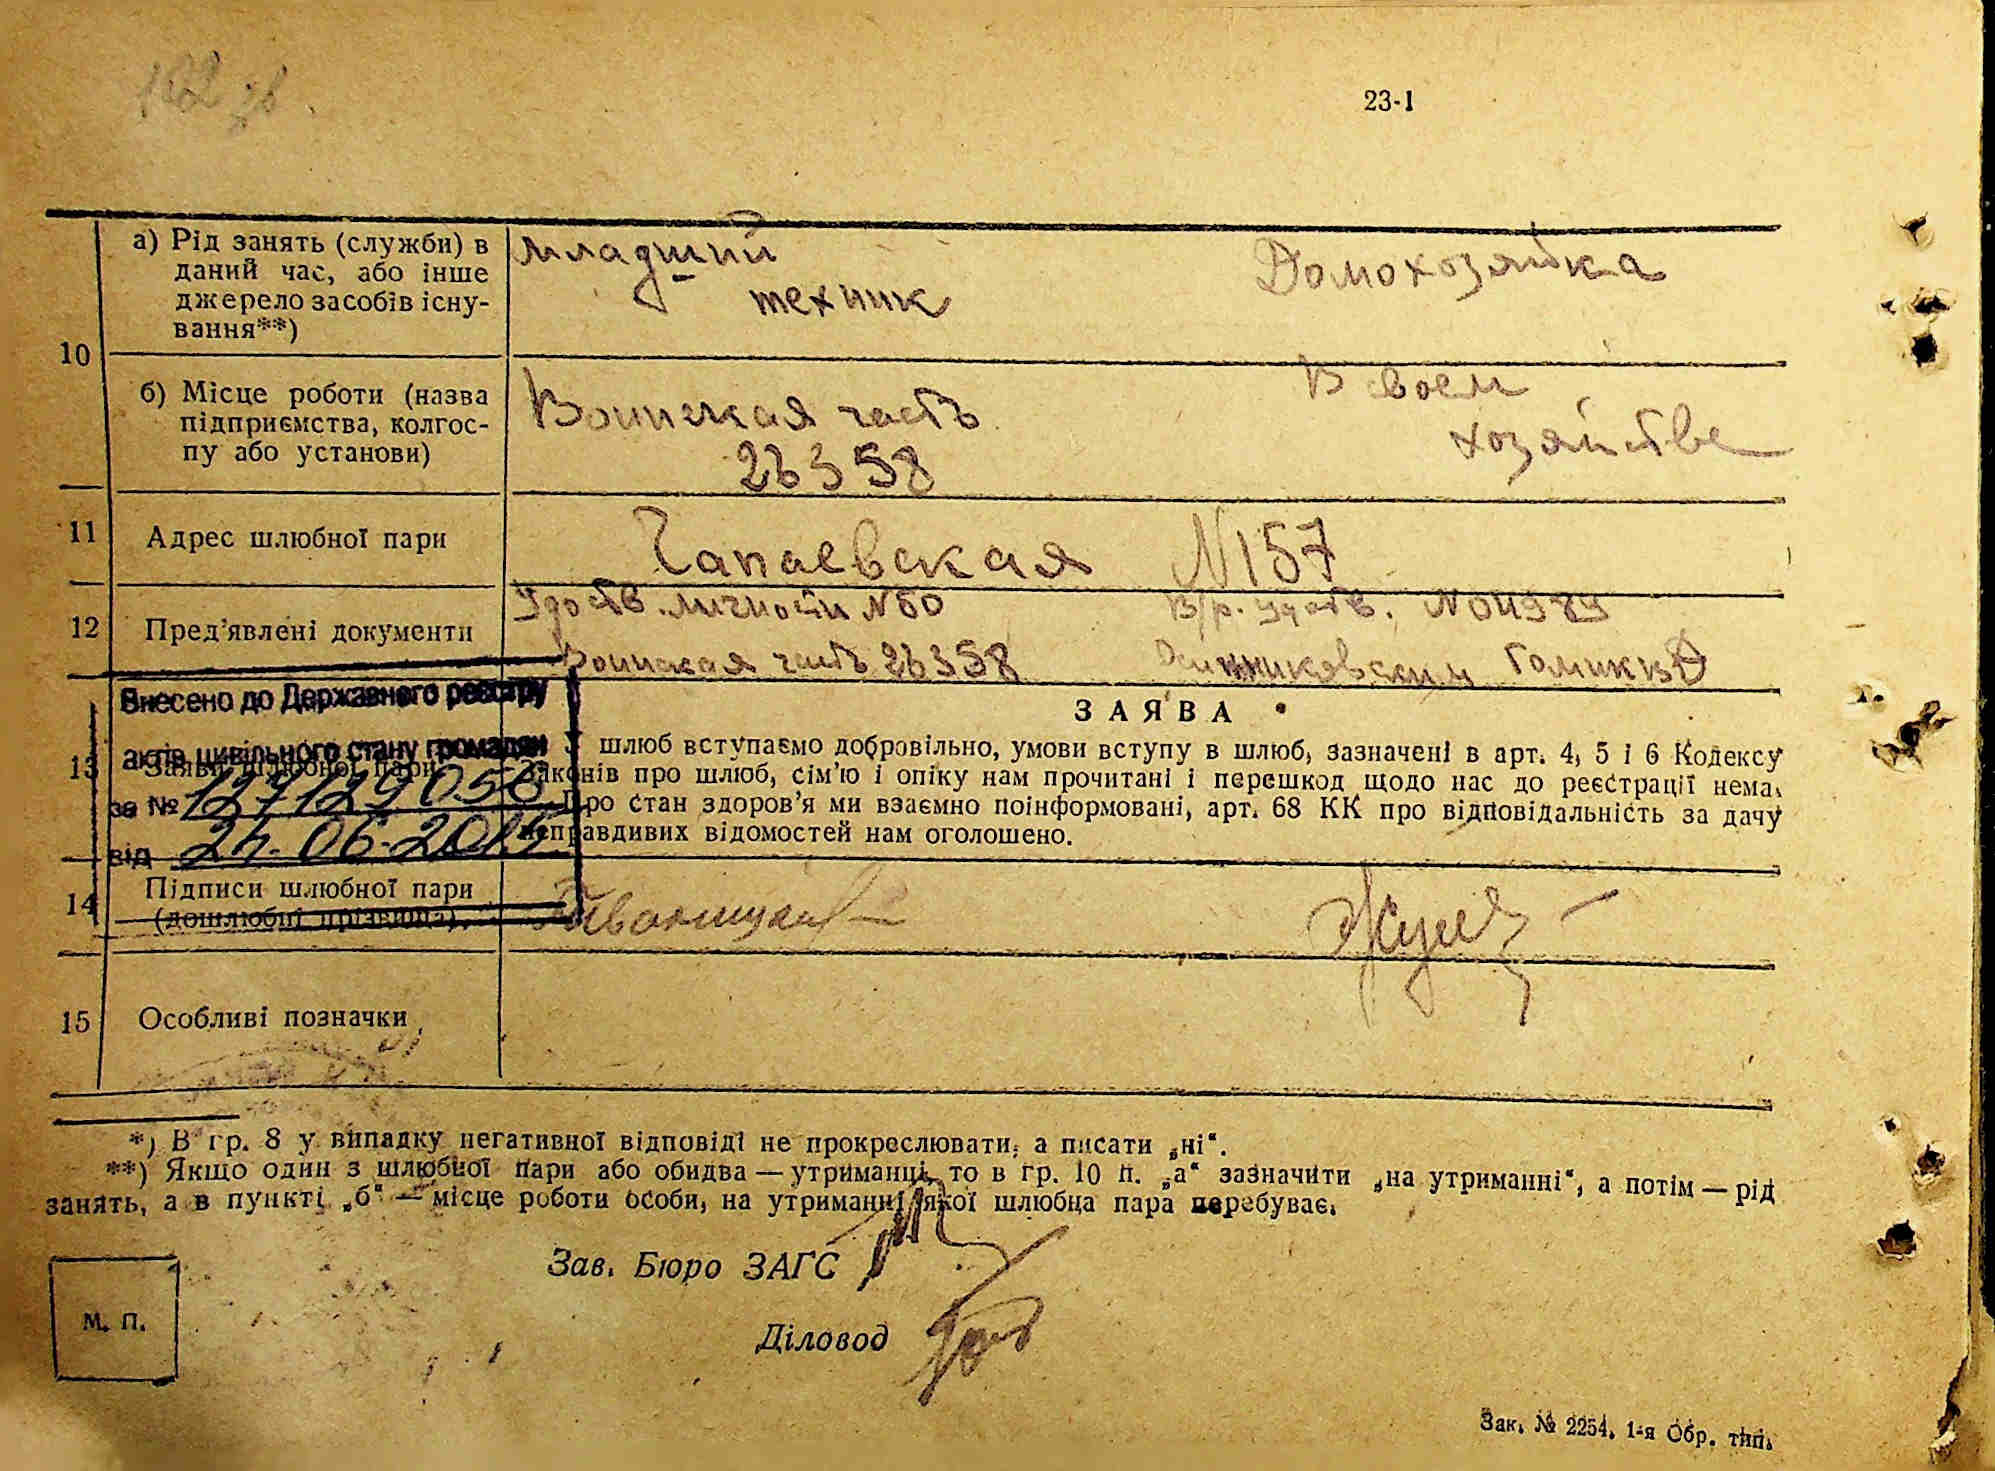 182 зв.
23-1
10
а) Рід занять (служби) в
даний час, або інше
джерело засобів існу-
вання**)
младший
техник
Домохозяйка
б) Місце роботи (назва
підприємства, колгос-
пу або установи)
Воинская часть
26358
В своем
хозяйстве
11
Адрес шлюбної пари
Чапаевская N157
12
Пред'явлені документи
Удоств. личности N50
Воинская часть 26358
В/р. удотв.
Внесено до Державного реєстру
актів цивільного стану громадян
за № 127129058
від 24.06.2015
13
Заяви шлюбної пари
ЗАЯВА
У шлюб вступаємо добровільно, умови вступу в шлюб, зазначені в арт. 4, 5 і 6 Кодексу
законів про шлюб, сім'ю і опіку нам прочитані і перешкод щодо нас до реєстрації нема.
Про стан здоров'я ми взаємно поінформовані, арт. 68 КК про відповідальність за дачу
неправдивих відомостей нам оголошено.
14
Підписи шлюбної пари
(дошлюбні прізвища).
15
Особливі позначки
*) В гр. 8 у випадку негативної відповіді не прокреслювати, а писати „ні“.
**) Якщо один з шлюбної пари або обидва — утриманці, то в гр. 10 п. „а“ зазначити „на утриманні“, а потім — рід
занять, а в пункті „б“ — місце роботи особи, на утриманні якої шлюбна пара перебуває.
Зав. Бюро ЗАГС
М. П.
Діловод
Зак. № 2254. 1-я Обр. тип.